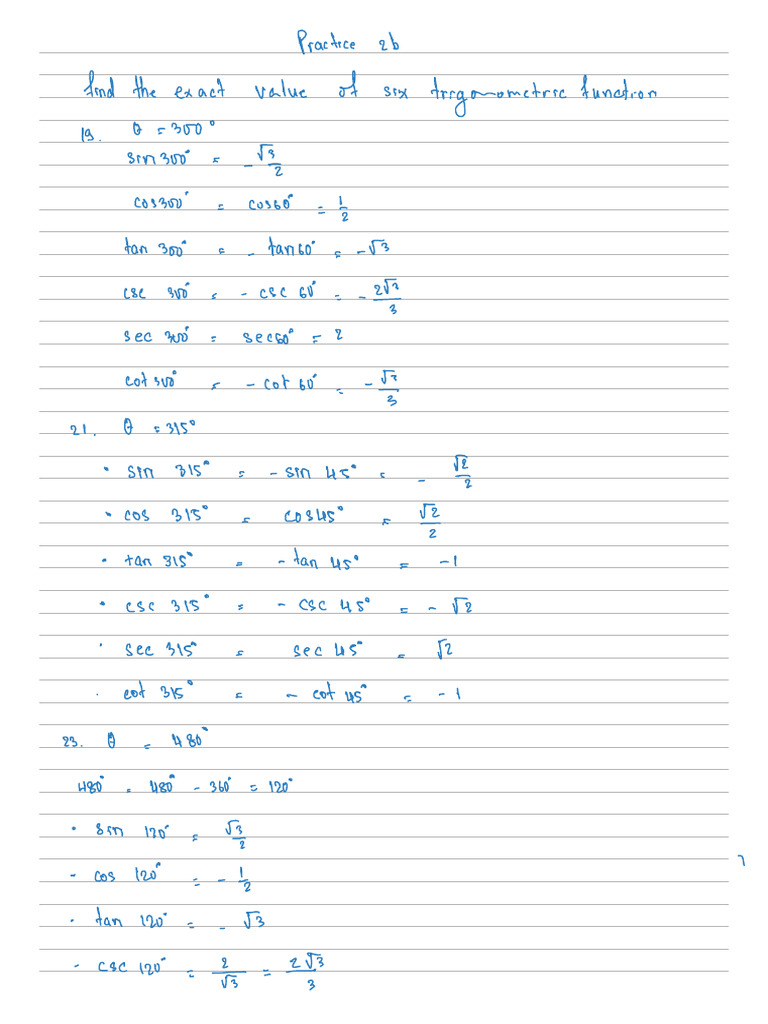 Practice 2b
find the exact value of six trigonometric function
19. θ = 300°
sin 300° = -√3/2
cos 300° = cos 60° = 1/2
tan 300° = - tan 60° = -√3
csc 300° = - csc 60° = - 2√3/3
sec 300° = sec 60° = 2
cot 300° = - cot 60° = - √3/3
21. θ = 315°
• sin 315° = - sin 45° = - √2/2
• cos 315° = cos 45° = √2/2
• tan 315° = - tan 45° = -1
• csc 315° = - csc 45° = - √2
• sec 315° = sec 45° = √2
• cot 315° = - cot 45° = -1
23. θ = 480°
480° = 480° - 360° = 120°
• sin 120° = √3/2
- cos 120° = - 1/2
• tan 120° = - √3
- csc 120° = 2/√3 = 2√3/3